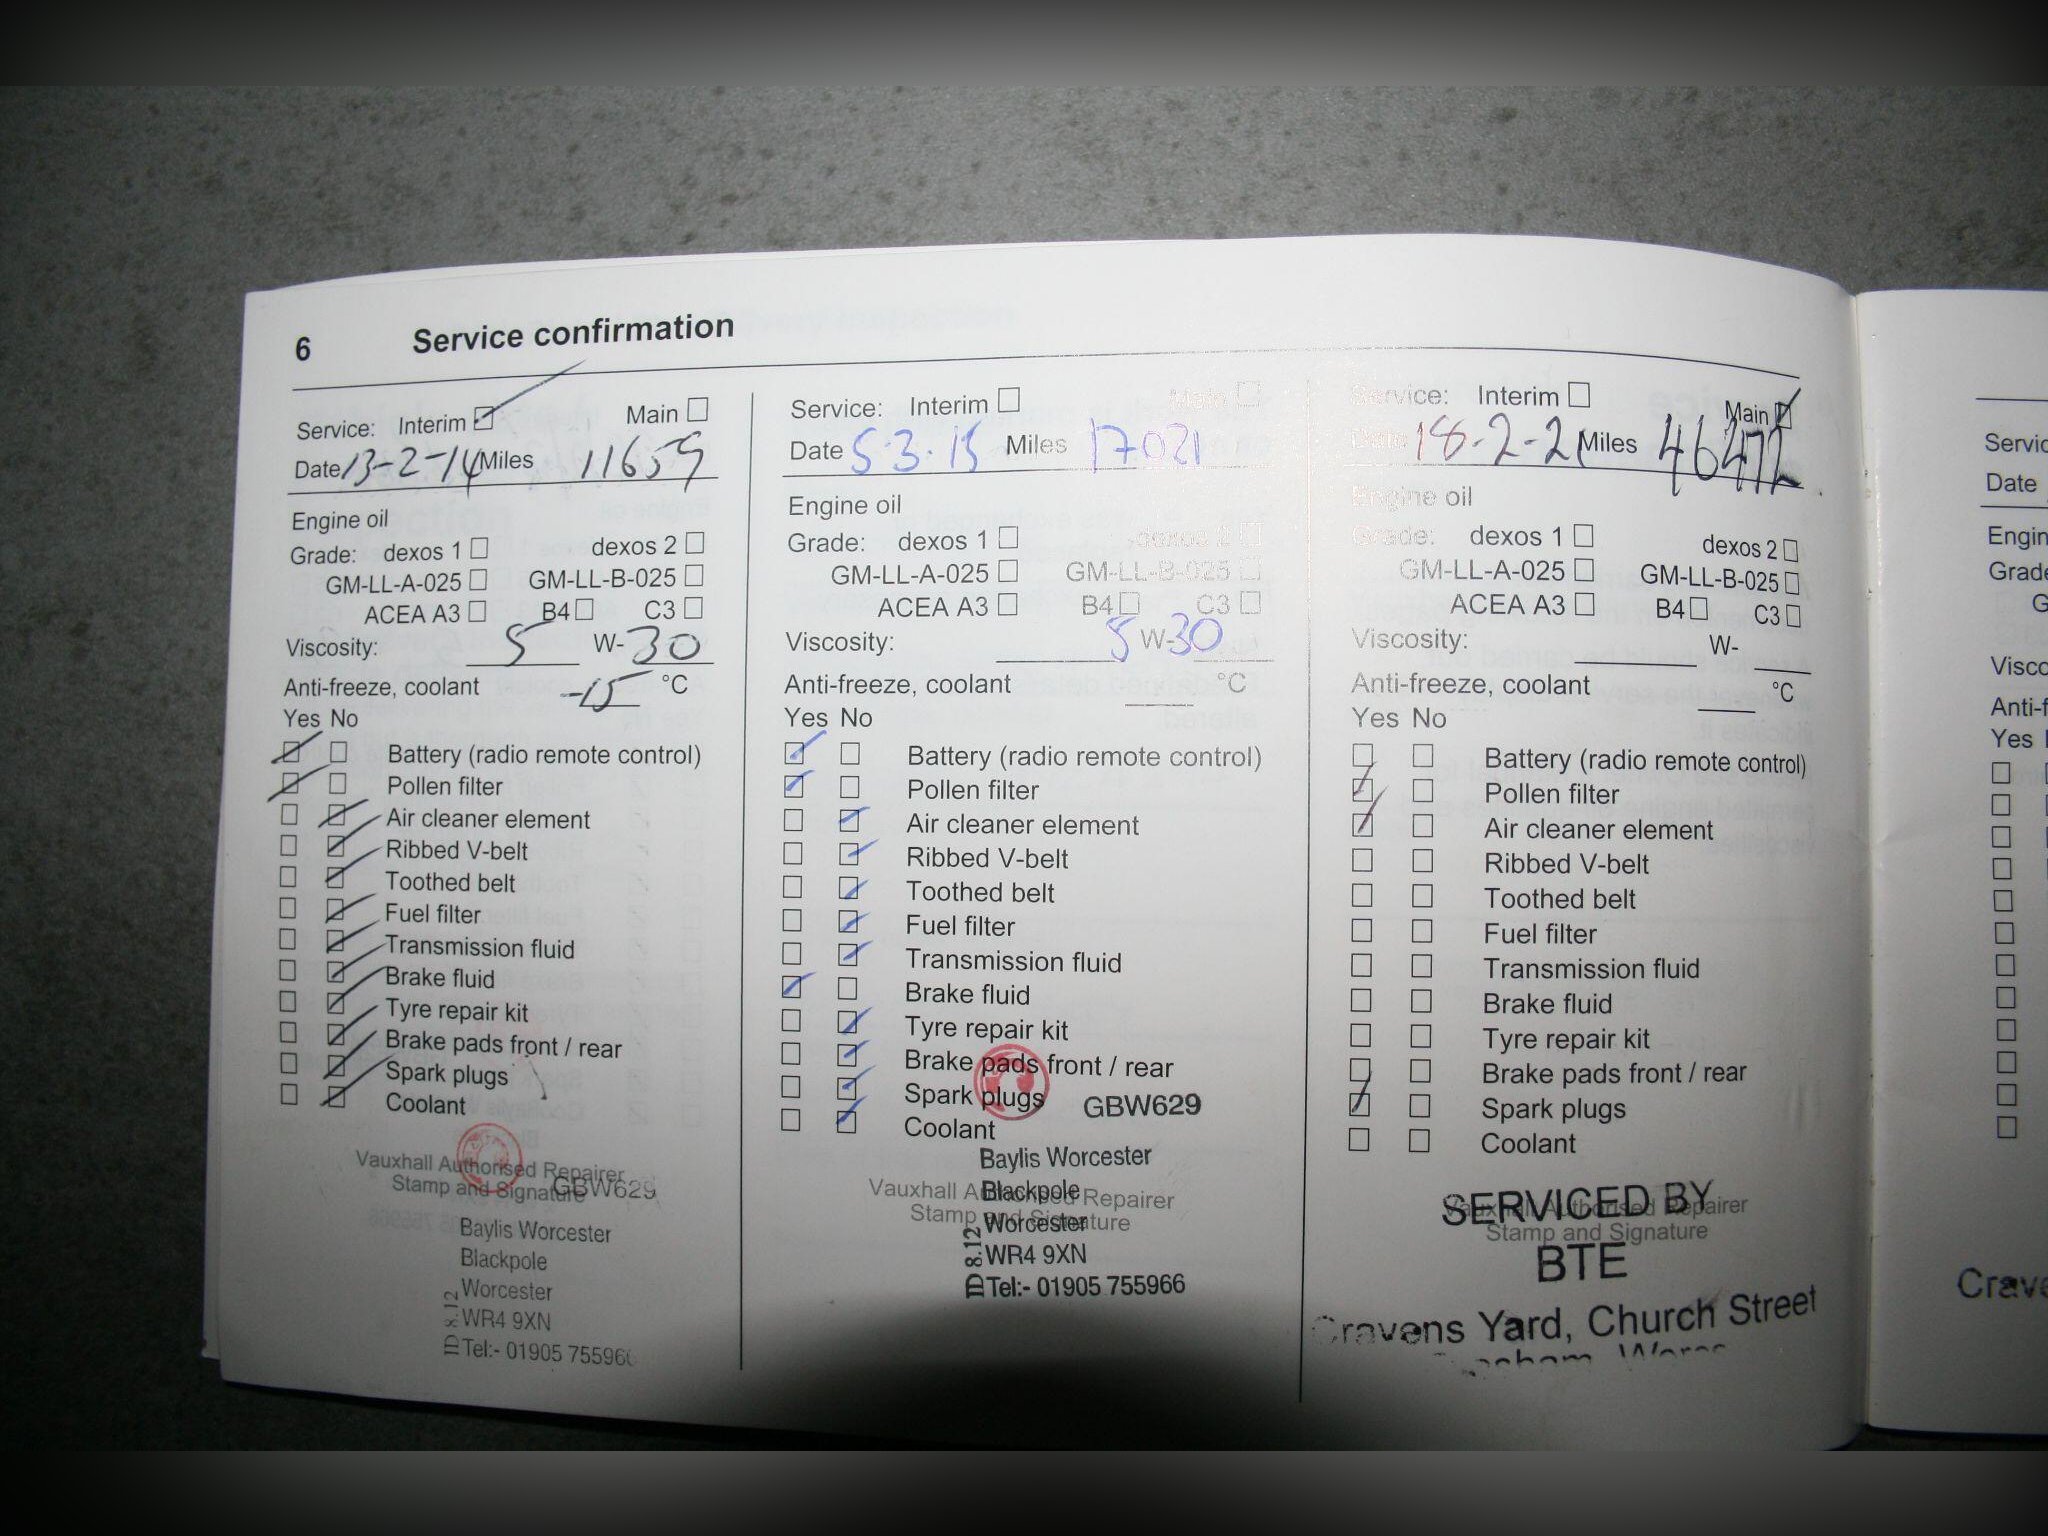 6 Service confirmation
Service: Interim Main
Date 13-2-14 Miles 11659
Engine oil
Grade: dexos 1 dexos 2
GM-LL-A-025 GM-LL-B-025
ACEA A3 B4 C3
Viscosity: 5 W-30
Anti-freeze, coolant -15 °C
Yes No
Battery (radio remote control)
Pollen filter
Air cleaner element
Ribbed V-belt
Toothed belt
Fuel filter
Transmission fluid
Brake fluid
Tyre repair kit
Brake pads front / rear
Spark plugs
Coolant
Vauxhall Authorised Repairer
Stamp and Signature
GBW629
Baylis Worcester
Blackpole
Worcester
WR4 9XN
TD 8.12 Tel:- 01905 755966
Service: Interim Main
Date 5.3.15 Miles 17021
Engine oil
Grade: dexos 1 dexos 2
GM-LL-A-025 GM-LL-B-025
ACEA A3 B4 C3
Viscosity: 5 W-30
Anti-freeze, coolant °C
Yes No
Battery (radio remote control)
Pollen filter
Air cleaner element
Ribbed V-belt
Toothed belt
Fuel filter
Transmission fluid
Brake fluid
Tyre repair kit
Brake pads front / rear
Spark plugs
Coolant
GBW629
Baylis Worcester
Blackpole
Vauxhall Authorised Repairer
Stamp and Signature
Worcester
WR4 9XN
TD 8.12 Tel:- 01905 755966
Service: Interim Main
Date 18-2-21 Miles
Engine oil
Grade: dexos 1 dexos 2
GM-LL-A-025 GM-LL-B-025
ACEA A3 B4 C3
Viscosity: W-
Anti-freeze, coolant °C
Yes No
Battery (radio remote control)
Pollen filter
Air cleaner element
Ribbed V-belt
Toothed belt
Fuel filter
Transmission fluid
Brake fluid
Tyre repair kit
Brake pads front / rear
Spark plugs
Coolant
SERVICED BY
Vauxhall Authorised Repairer
Stamp and Signature
BTE
Cravens Yard, Church Street
Servic
Date
Engin
Grade
G
Visco
Anti-f
Yes
Crave